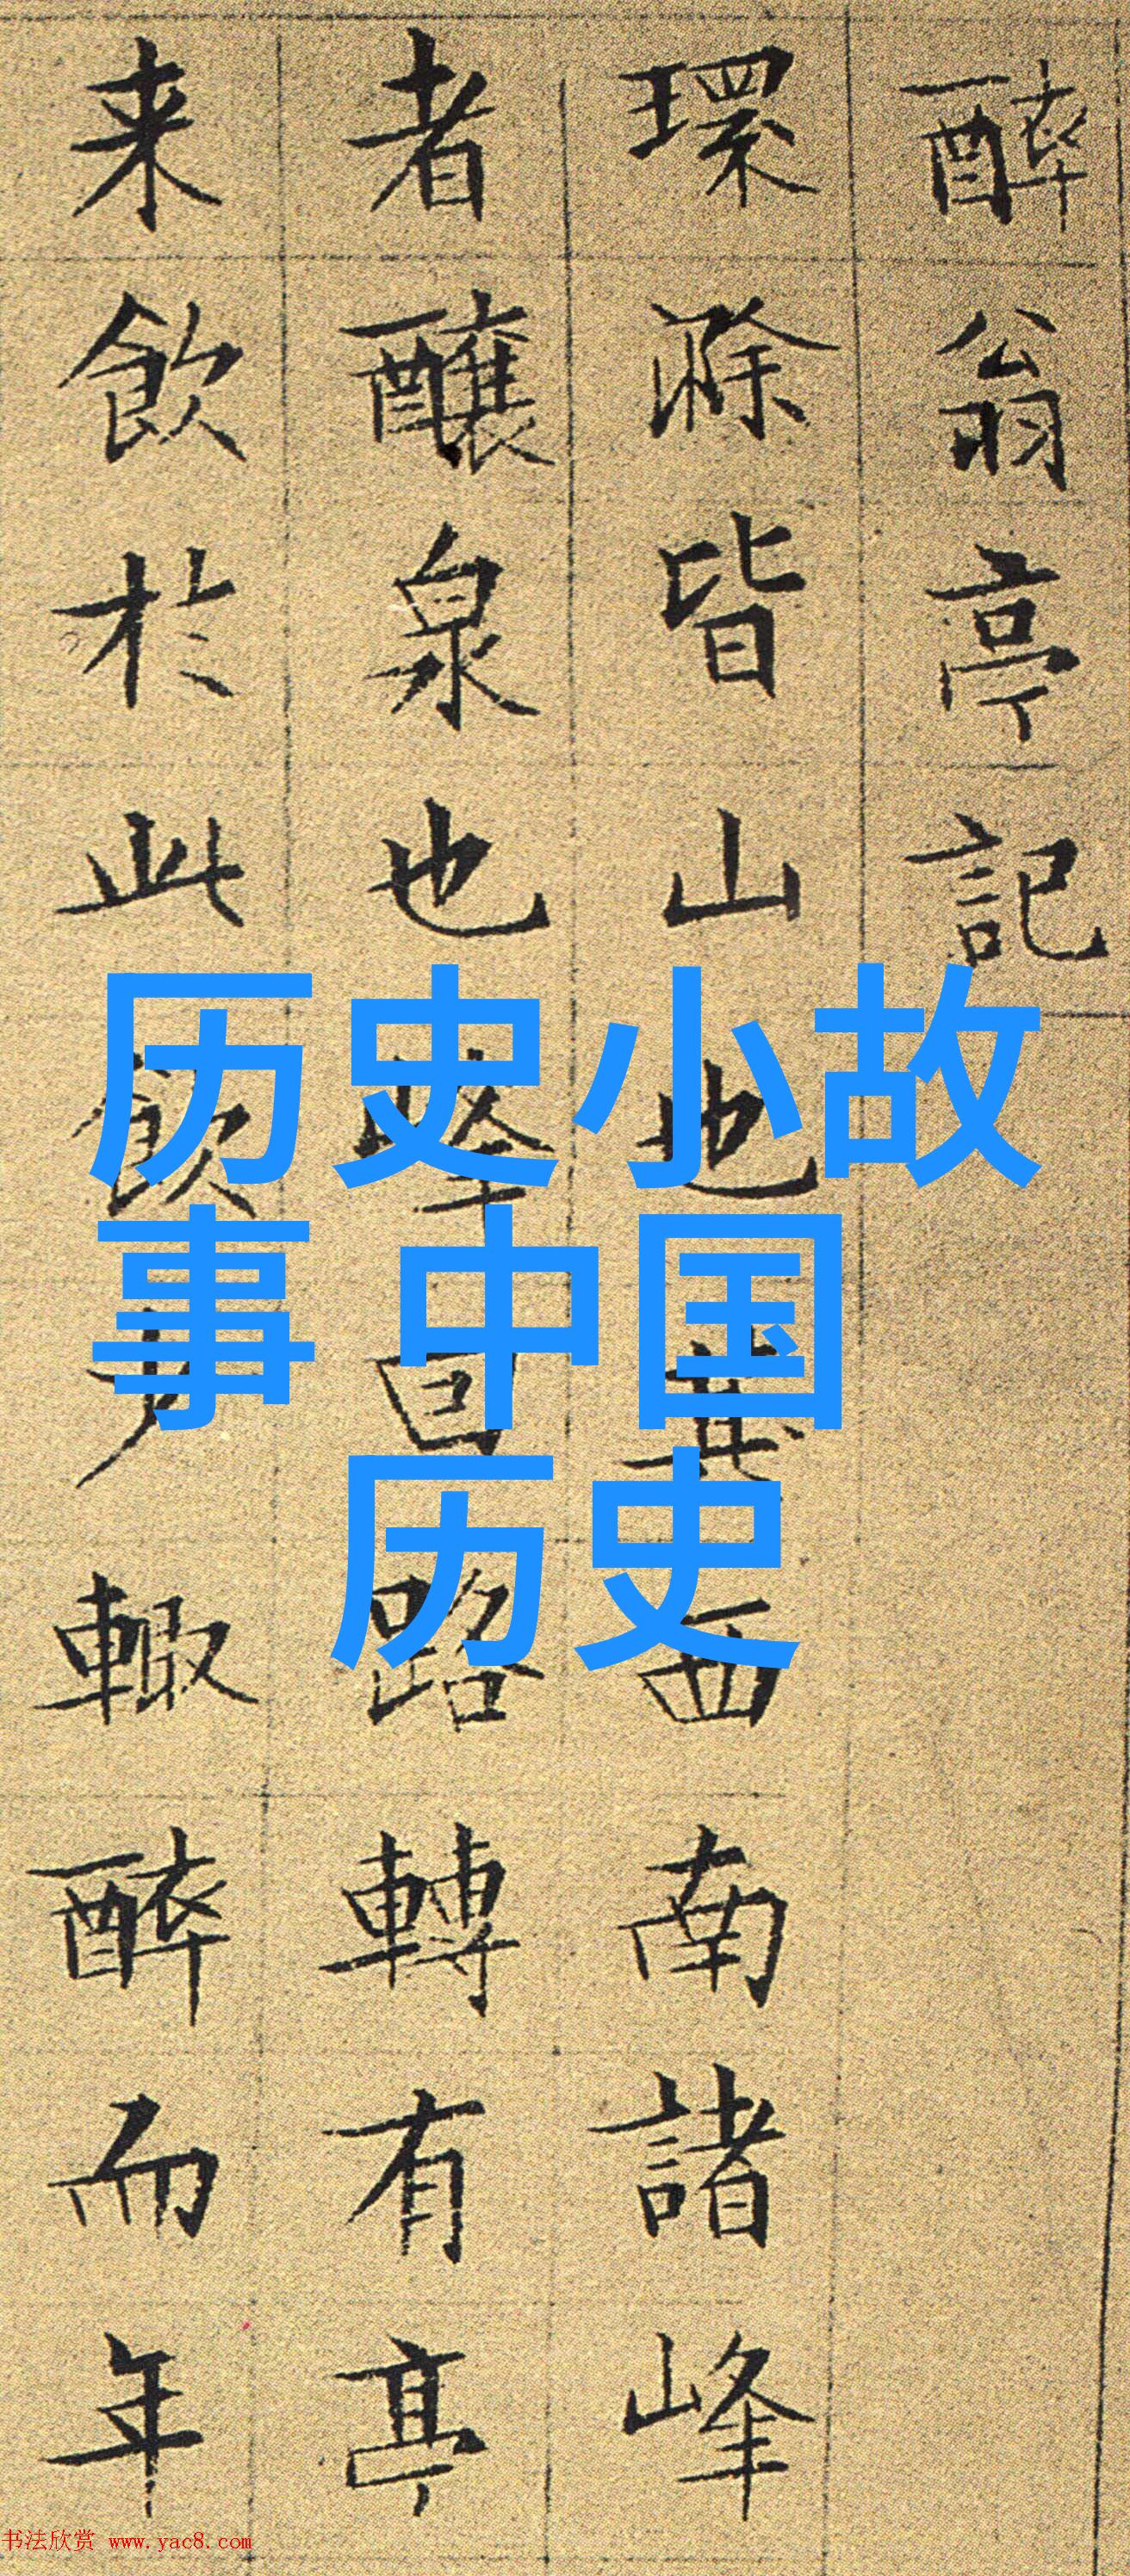 醉翁亭記
環滁皆山也其西南諸峰
者釀泉也峰回路轉有亭
来飲於此飲少輙醉而年
历史小故
事 中国
历史
书法欣赏 www.yac8.com